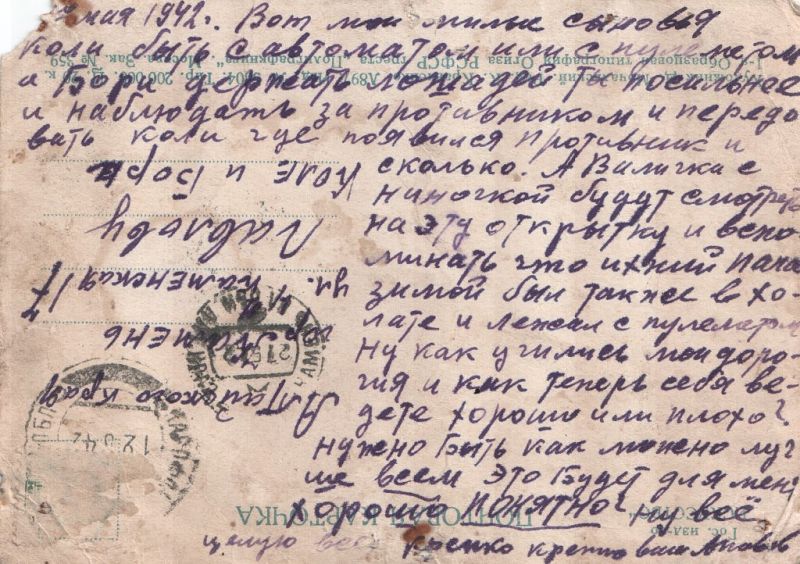 мая 1942 г. Вот мои милые сыновья
коли быть с автоматом или с пулеметом
а Бори держать лошадей тех посильнее
и наблюдать за противником и передо
вать коли где появился противник и
сколько. А Валичка с
ниночкой будут смотреть
на эту открытку и вспо
минать что ихний папа
зимой был также в ха
лате и лежал с пулеметом
ну как учились мои доро
гия и как теперь себя ве
дете хорошо или плохо?
нужно быть как можно луч
ше всем это будет для меня
хорошо понятно? ну всё
целую всех крепко крепко ваш
Алтайского края
гор.
ул. Каменская
Коле и Бори
ПОЧТОВАЯ КАРТОЧКА
Гос. изд-во
1-я Образцовая типография Огиза РСФСР треста „Полиграфкнига“. Москва. Зак. № 359